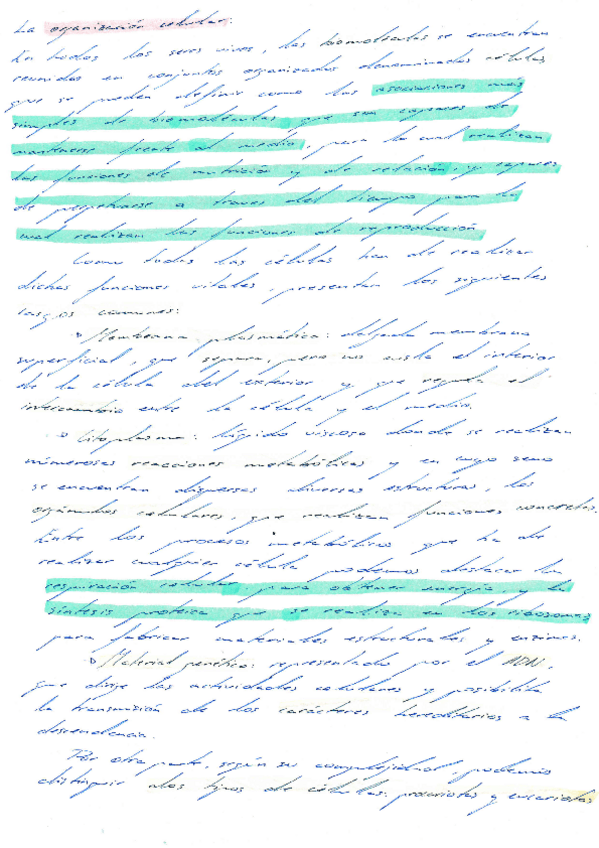 La organización celular:
En todos los seres vivos, las biomoléculas se encuentran
reunidas en conjuntos organizados denominados células
que se pueden definir como las asociaciones más
simples de biomoléculas que son capaces de
mantenerse frente al medio, para lo cual realizan
las funciones de nutrición y de relación, y capaces
de perpetuarse a traves del tiempo para lo
cual realizan las funciones de reproducción.
Como todas las células han de realizar
dichas funciones vitales, presentan los siguientes
rasgos comunes:
Membrana plasmática: delgada membrana
superficial, que separa, pero no aisla el interior
de la célula del exterior y que regula el
intercambio entre la célula y el medio.
Citoplasma: líquido viscoso donde se realizan
númerosas reacciones metabólicas y en cuyo seno
se encuentran dispersas diversas estructuras, los
orgánulos celulares, que realizan funciones concretas.
Entre los procesos metabólicos que ha de
realizar cualquier célula podemos destacar la
respiración celular, para obtener energía, y la
síntesis proteica que se realiza en los ribosomas
para fabricar materiales estructurales y enzimas.
Material genético: representado por el ADN,
que dirige las actividades celulares y posibilita
la transmisión de los carácteres hereditarios a la
descendencia.
Por otra parte, según su complejidad, podemos
distinguir dos tipos de células: procariotas y eucariotas